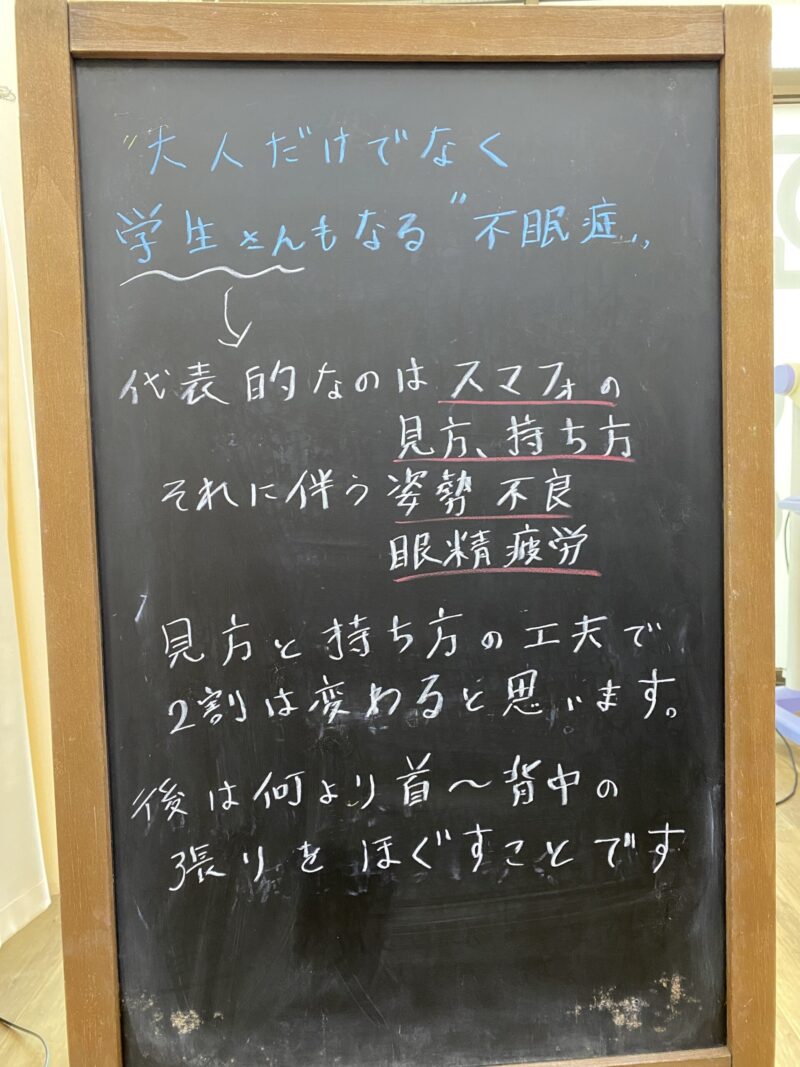 "大人だけでなく
学生さんもなる"不眠症"
代表的なのはスマフォの
見方、持ち方
それに伴う姿勢不良
眼精疲労
見方と持ち方の工夫で
2割は変わると思います。
後は何より首〜背中の
張りをほぐすことです